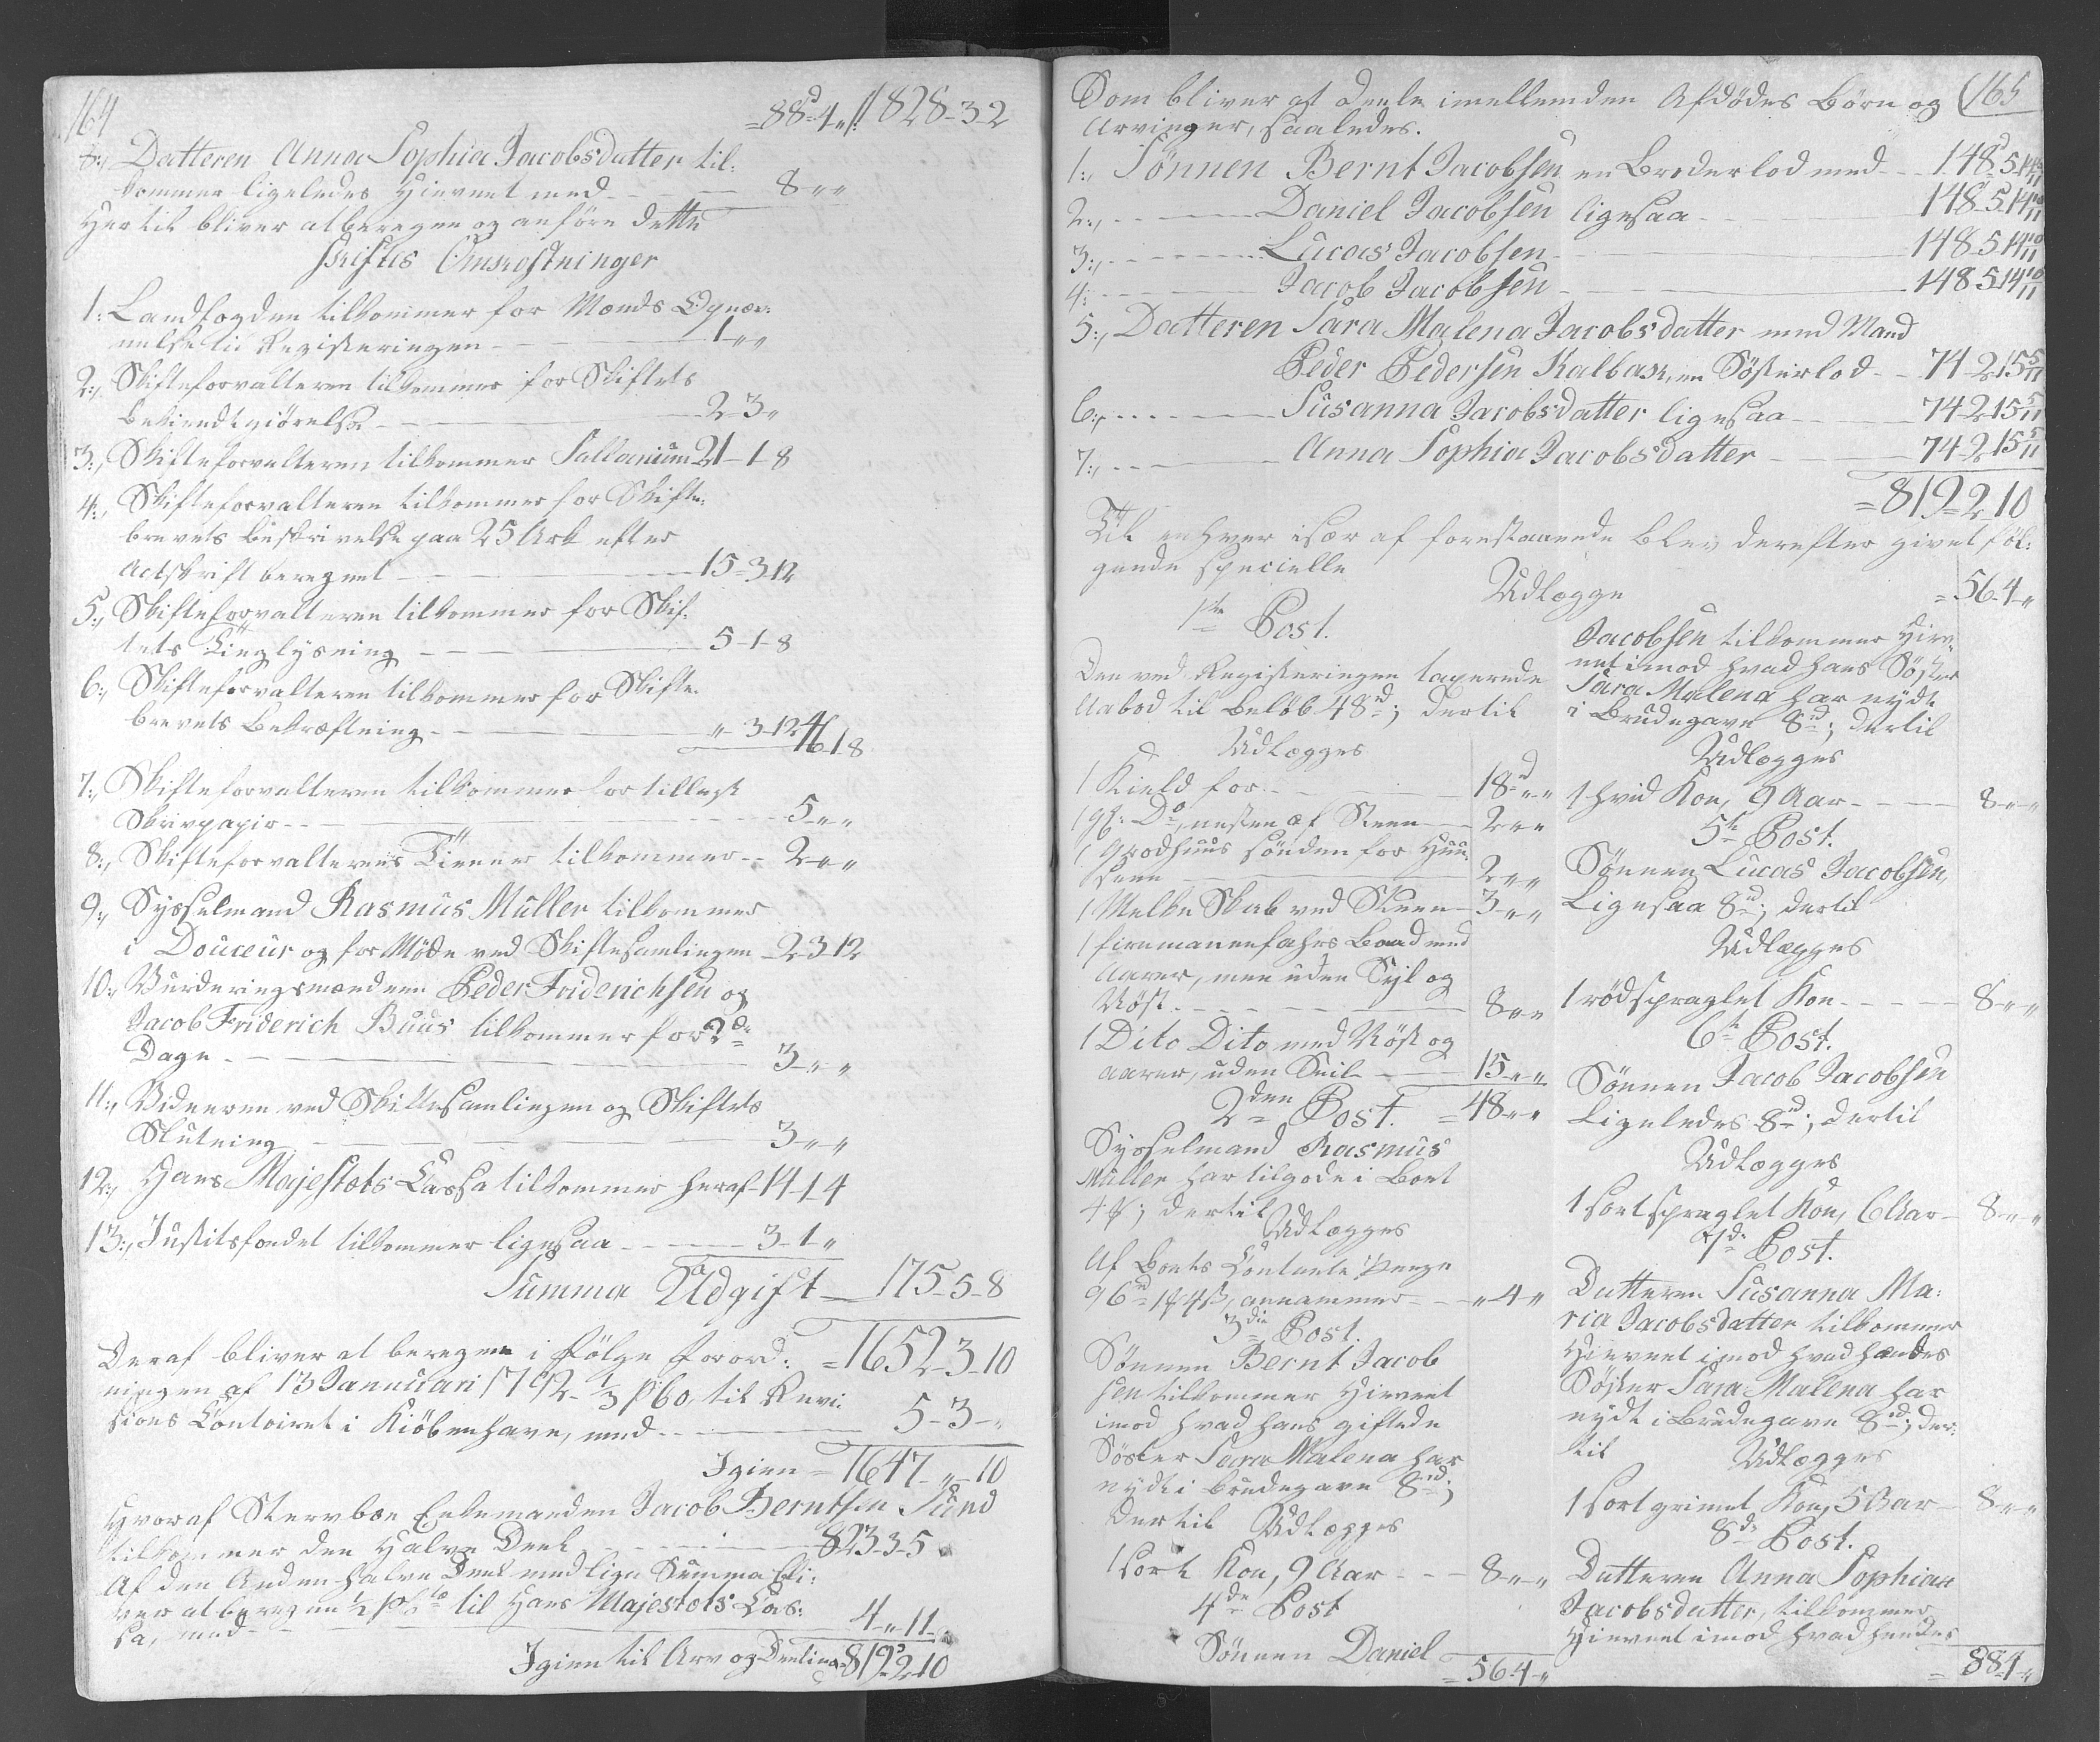 164
=88d-4-„ // 1828-3-2
8:, Datteren Anna Sophia Jacobsdatter til-
kommer ligeledes Hievnet med - - - 8-„-„
Hertil bliver at beregne og anföre dette
Skiftes Omkostninger
1:, Landfogden tilkommer for Mænds Opnæv-
nelse til Registeringen - - - 1-„-„
2:, Skifteforvalteren tilkommer for Skiftets
Bekiendtgiörelse - - - 2-3-„
3:, Skifteforvalteren tilkommer Sallarium 21-1-8
4:, Skifteforvalteren tilkommer for Skifte-
brevets Beskrivelse paa 25 Ark efter
Actskrift beregnet - - - 15-3-12
5:, Skifteforvalteren tilkommer for Skif-
tets Tinglysning - - - 5-1-8
6:, Skifteforvalteren tilkommer for Skifte-
brevets Bekræftning - - - „-3-12 46-1-8
7:, Skifteforvalteren tilkommer for tillagt
Skrivpapir - - - 5-„-„
8:, Skifteforvalterens Tiener tilkommer - - 2-„-„
9:, Sysselmand Rasmus Müller tilkommer
i Douceur og for Möde ved Skiftesamlingen - 2-3-12
10:, Vurderingsmændene Peder Friderichsen og
Jacob Friderich Buus tilkommer for 2de
Dage - - - 3-„-„
11:, Vidnerne ved Skiftesamlingen og Skiftets
Slutning - - - 3-„-„
12:, Hans Majestæts Cassa tilkommer heraf - 14-1-4
13:, Justitsfondet tilkommer ligesaa - - - 3-1-„
Summa Udgift - 175-5-8
Deraf bliver at beregne i fölge Forord- =1652-3-10
ningen af 13 Januari 1792 - 1/3 pCto, til Revi-
sions Contoiret i Kiöbenhavn, med - - - 5-3-„
Igien = 1647-„-10
Hvoraf Stervboe Enkemanden Jacob Berntsen Sund
tilkommer den Halve Deel - - - 823-3-5
Af den Anden halve Deel med lige Summa bli-
ver at beregne 1/2 pCto til Hans Majestæts Cas-
sa, med - - - 4-„-11
Igien til Arv og Deeling =819-2-10
165
Som bliver at deele imellem den Afdödes Börn og
Arvinger, saaledes.
1:, Sönnen Bernt Jacobsen en Broderlod med - - - 148d-5-14 10/11
2:, - - - Daniel Jacobsen ligesaa - - - 148-5-14 10/11
3:, - - - Lucas Jacobsen - - - 148-5-14 10/11
4:, - - - Jacob Jacobsen - - - 148-5-14 10/11
5:, Datteren Sara Malena Jacobsdatter med Mand
Peder Pedersen Kalbak, en Sösterlod - - 74-2-15 5/11
6:, - - - Susanna Jacobsdatter ligesaa - - - 74-2-15 5/11
7:, - - - Anna Sophia Jacobsdatter - - - 74-2-15 5/11
=819-2-10
Til enhver især af forestaaende blev derefter givet föl-
gende specielle
Udlægge
1ste Post.
Den ved Registeringen taxerede
Aabod til Belöb 48d; dertil
Udlægges
1 Kield for - - - 18d-„-„
1 gl: Do, næsten af Steen - - 2-„-„
1 Grodhuus sönden for Huu-
sene - - - 2-„-„
1 Melke Skab ved Stuen - 3-„-„
1 firemannefahrs Baad med
Aarer, men uden Sejl og
Röst - - - 8-„-„
1 Dito Dito med Röst og
aarer, uden Seil - - - 15-„-„
2den Post. =48-„-„
Sysselmand Rasmus
Müller har tilgode i Boet
4f; dertil
Udlægges
Af Boets Contante Penge
96d 1f 4s, annammer - - „-4-„
3die Post.
Sönnen Bernt Jacob
sen tilkommer Hievnet
imod hvad hans giftede
Söster Sara Malena har
nydt i Brudegave 8d;
dertil Udlægges
1 sort Koe, 9 Aar - - - 8-„-„
4de Post
Sönnen Daniel
=56-4-„
=56-4-„
Jacobsen tilkommer Hiev-
net imod hvad hans Söster
Sara Malena har nydt
i Brudegave 8d; dertil
Udlægges
1 hvid Koe, 9 Aar - - - 8-„-„
5te Post.
Sönnen Lucas Jacobsen,
Ligesaa 8d; dertil
Udlægges
1 rödspraglet Koe - - - 8-„-„
6te Post.
Sönnen Jacob Jacobsen
Ligeledes 8d; dertil
Udlægges
1 sortspraglet Koe, 6 Aar - 8-„-„
7de Post.
Datteren Susanna Ma-
ria Jacobsdatter tilkommer
Hievnet imod hvad hendes
Söster Sara Malena har
nydt i Brudegave 8d; der-
til Udlægges
1 sortgrimet Koe, 5 Aar - 8-„-„
8de Post.
Datteren Anna Sophia
Jacobsdatter, tilkommer
Hievnet imod hvad hendes
=88-4-„